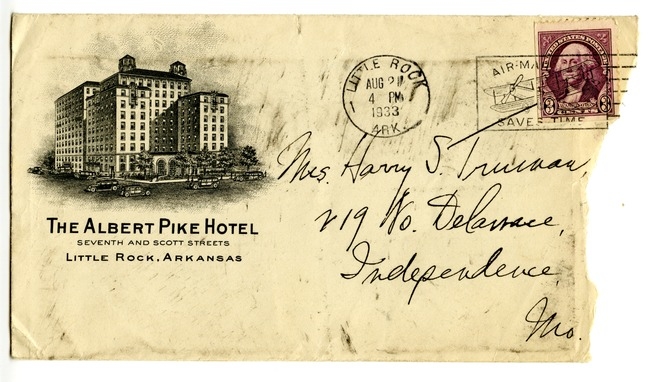 THE ALBERT PIKE HOTEL
SEVENTH AND SCOTT STREETS
LITTLE ROCK, ARKANSAS
LITTLE ROCK
AUG 21
4 PM
1933
ARK.
AIR-MA
SAVES TIME
UNITED STATES POSTAGE
3 3
Mrs. Harry S. Truman,
219 No. Delaware,
Independence
Mo.